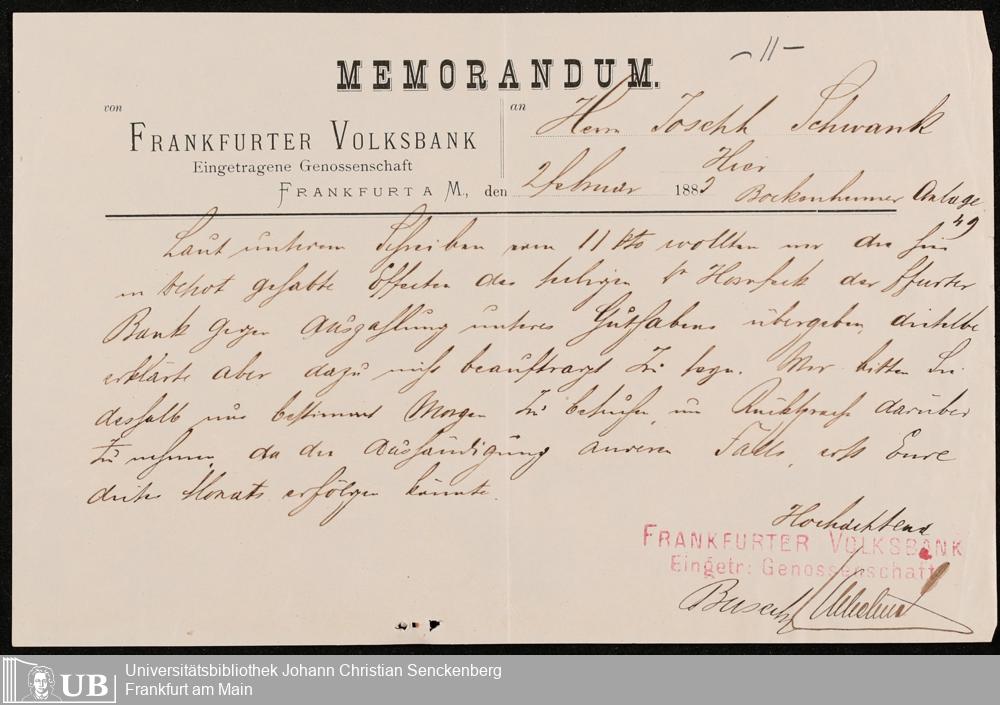 – 11 –
MEMORANDUM.
von
an
Herrn Joseph Schwank
FRANKFURTER VOLKSBANK
Eingetragene Genossenschaft
Hier
FRANKFURT A M., den 2 Februar 188
Bockenheimer Anlage
49
Laut unserem Schreiben vom 11 wollten wir die hier
in Depot gehabte Effecten des seeligen der Ffurter
Bank gegen Auszahlung unseres Guthabens übergeben, dieselbe
erklärte aber dazu nicht beauftragt zu sein. Wir bitten Sie
deshalb uns bestimmt Morgen zu besuchen um Rücksprache darüber
zu nehmen, da die Aushändigung anderen Falls, erst Ende
dieses Monats erfolgen könnte.
Hochachtend
FRANKFURTER VOLKSBANK
Eingetr: Genossenschaft
Busch
UB
Universitätsbibliothek Johann Christian Senckenberg
Frankfurt am Main